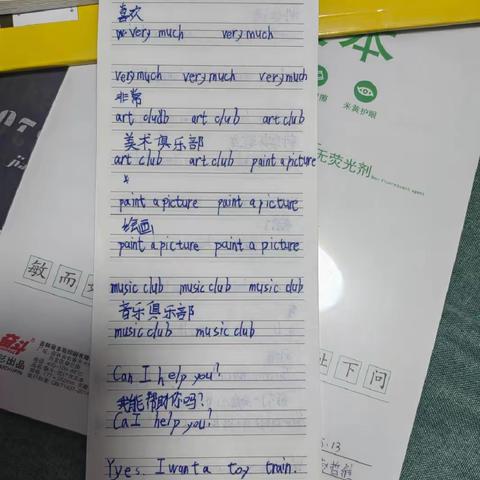 喜欢
very much very much
very much very much very much
非常
art club art club
美术俱乐部
art club art club paint a picture
paint a picture paint a picture
绘画
paint a picture paint a picture
music club music club music club
音乐俱乐部
music club music club
Can I help you?
我能帮助你吗?
Ca I help you?
Yyes. I want a toy train.
本
米装护眼
无荧光剂
敏 而
下 问